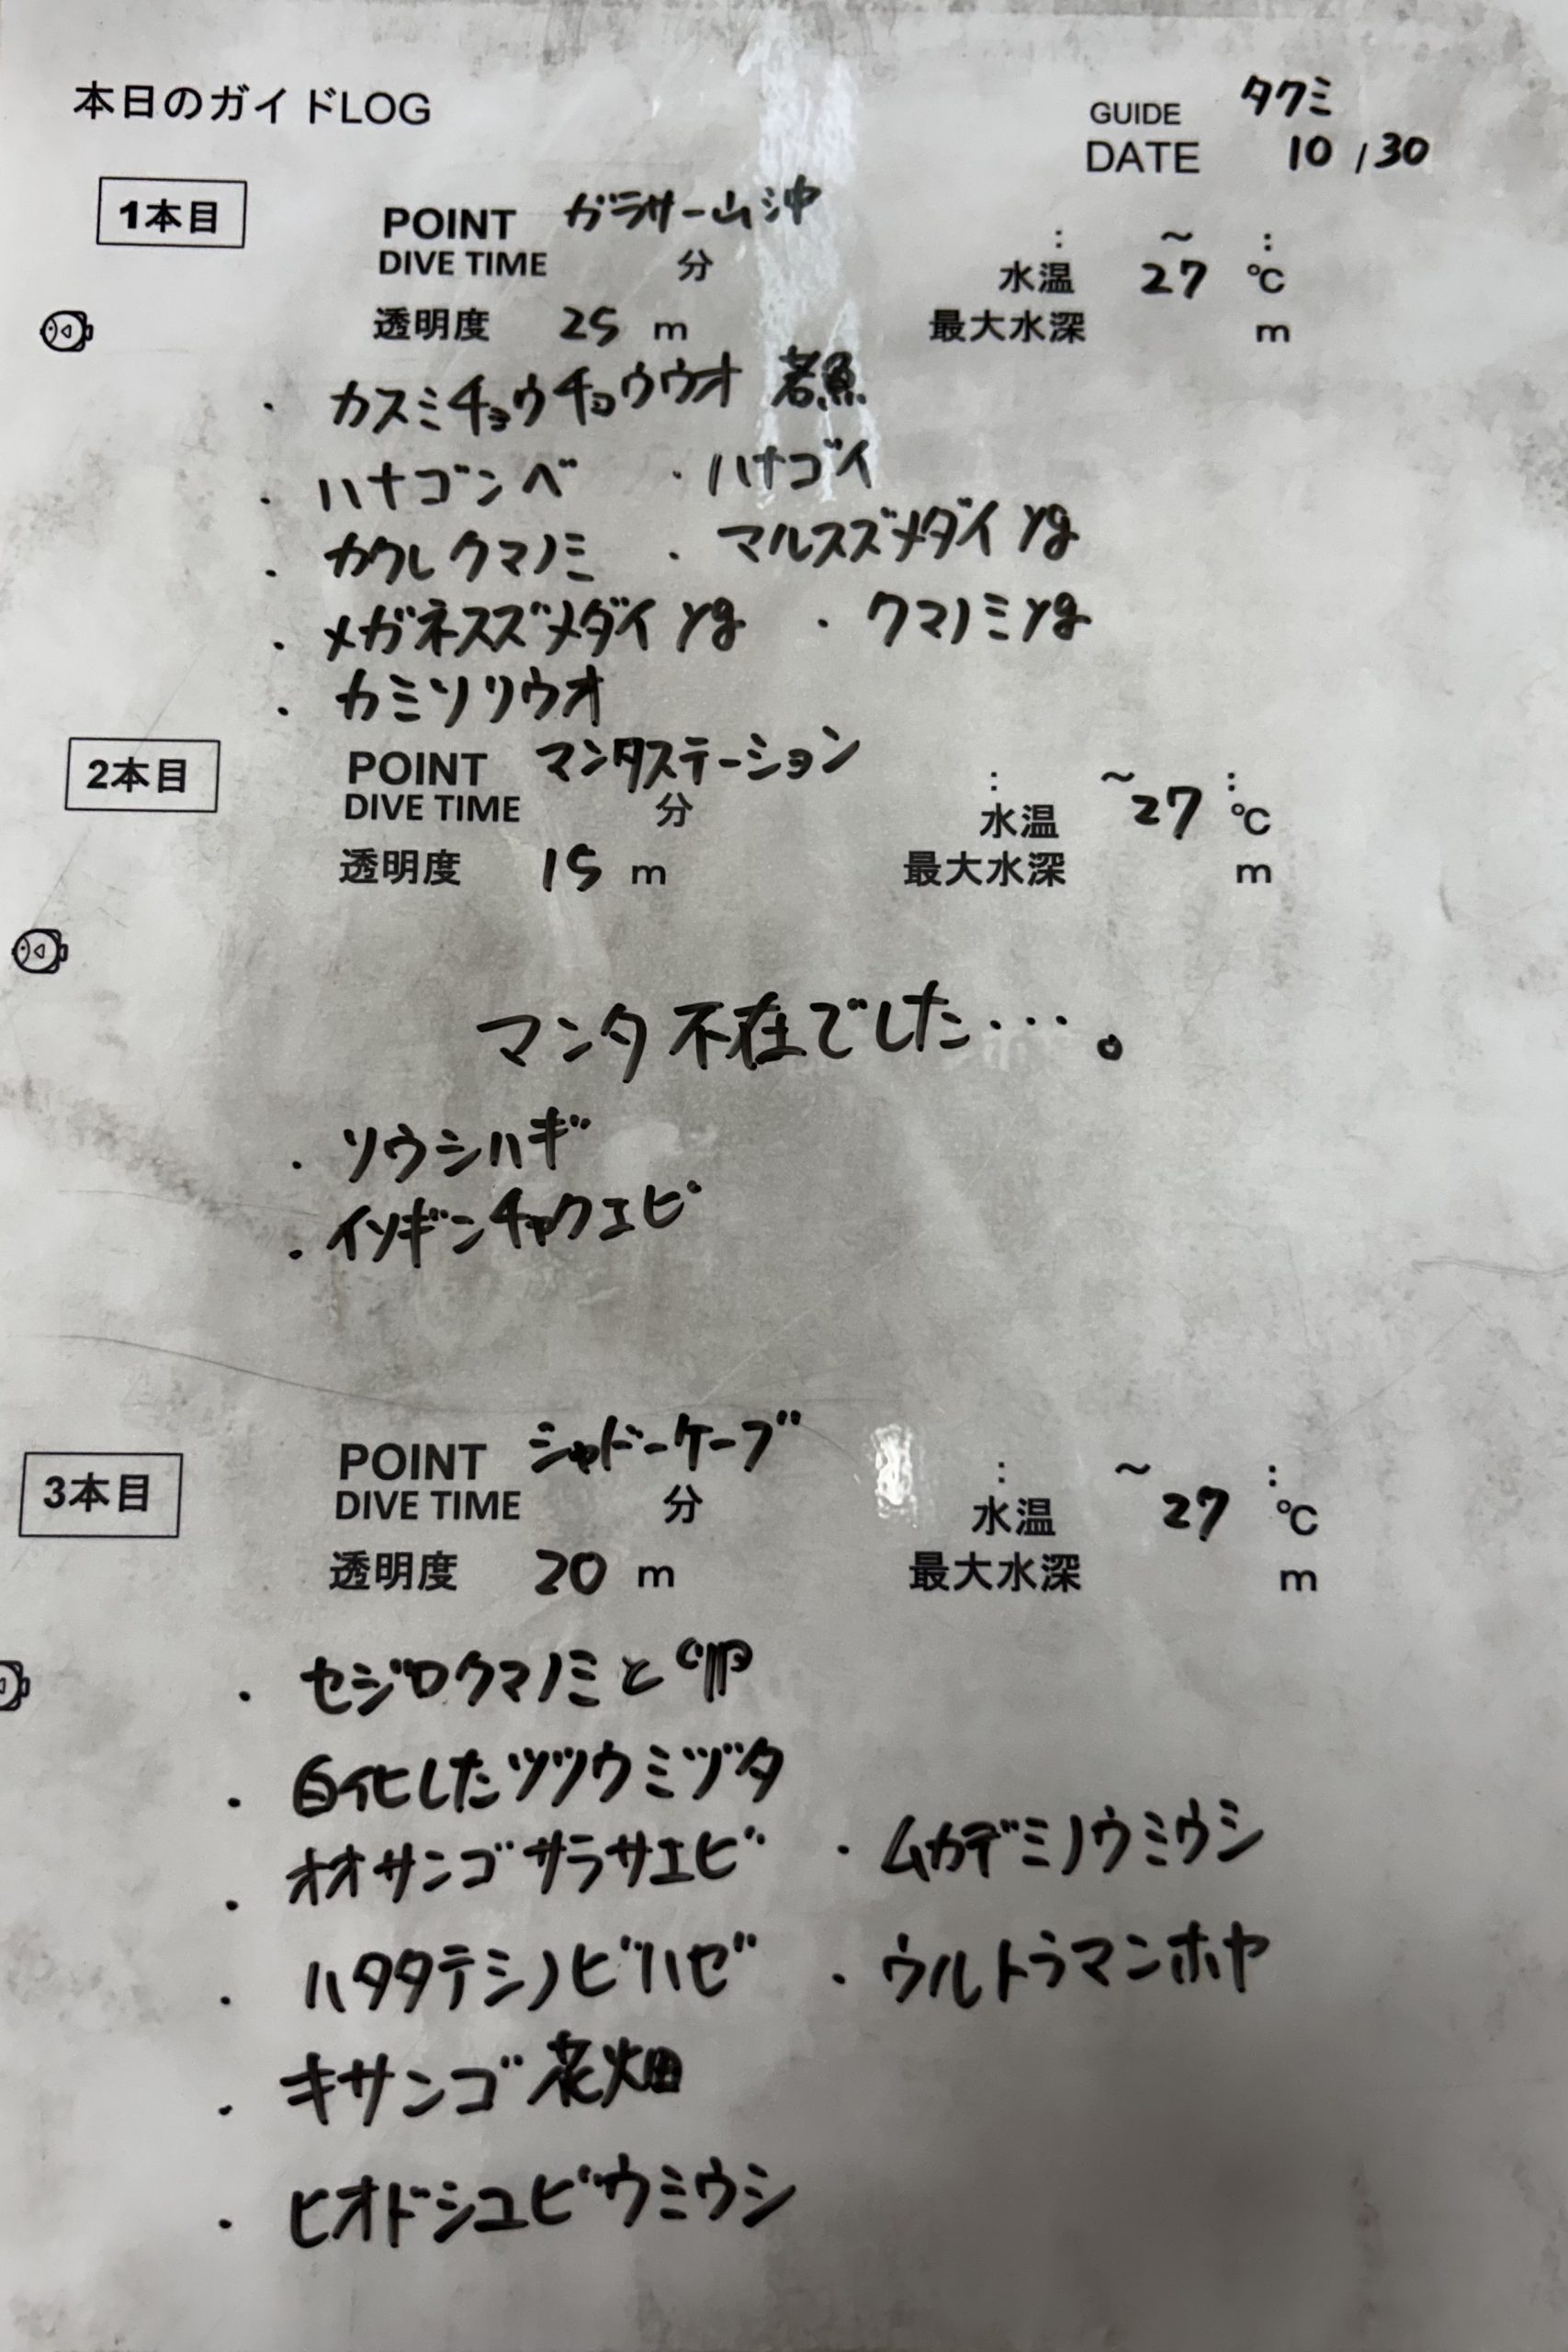 本日のガイドLOG
GUIDE タクミ
DATE 10/30
1本目
POINT ガラサー山沖
DIVE TIME 分 : ～ :
水温 27 ℃
透明度 25 m 最大水深 m
・カスミチョウチョウウオ 若魚
・ハナゴンベ ・ハナゴイ
・カクレクマノミ ・マルスズメダイ yg
・メガネスズメダイ yg ・クマノミ yg
・カミソリウオ
2本目
POINT マンタステーション
DIVE TIME 分 : ～ :
水温 27 ℃
透明度 15 m 最大水深 m
マンタ不在でした・・・。
・ソウシハギ
・イソギンチャクエビ
3本目
POINT シャドーケーブ
DIVE TIME 分 : ～ :
水温 27 ℃
透明度 20 m 最大水深 m
・セジロクマノミと卵
・白化したツツウミヅタ
・オオサンゴサラサエビ ・ムカデミノウミウシ
・ハタタテシノビハゼ ・ウルトラマンホヤ
・キサンゴ花畑
・ヒオドシユビウミウシ